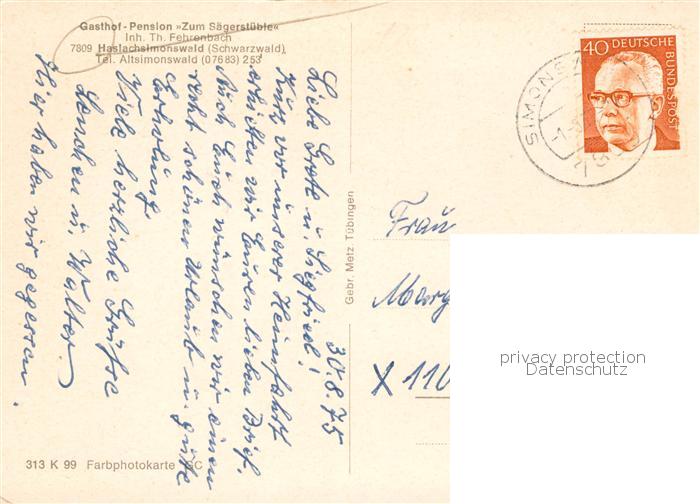 Gasthof-Pension »Zum Sägerstüble«
Inh. Th. Fehrenbach
7809 Haslachsimonswald (Schwarzwald)
Tel. Altsimonswald (07683) 253
30.8.75
Liebe Grete u. Siegfried!
Kurz vor unserer Heimfahrt
erhielten wir Euren lieben Brief.
Auch Euch wünschen wir einen
recht schönen Urlaub u. gute
Erholung.
Viele herzliche Grüße
Lenchen u. Walter.
Hier haben wir gegessen.
313 K 99 Farbphotokarte GC
Gebr. Metz Tübingen
40 DEUTSCHE BUNDESPOST
SIMONS
Frau
Marg
X 110
privacy protection
Datenschutz